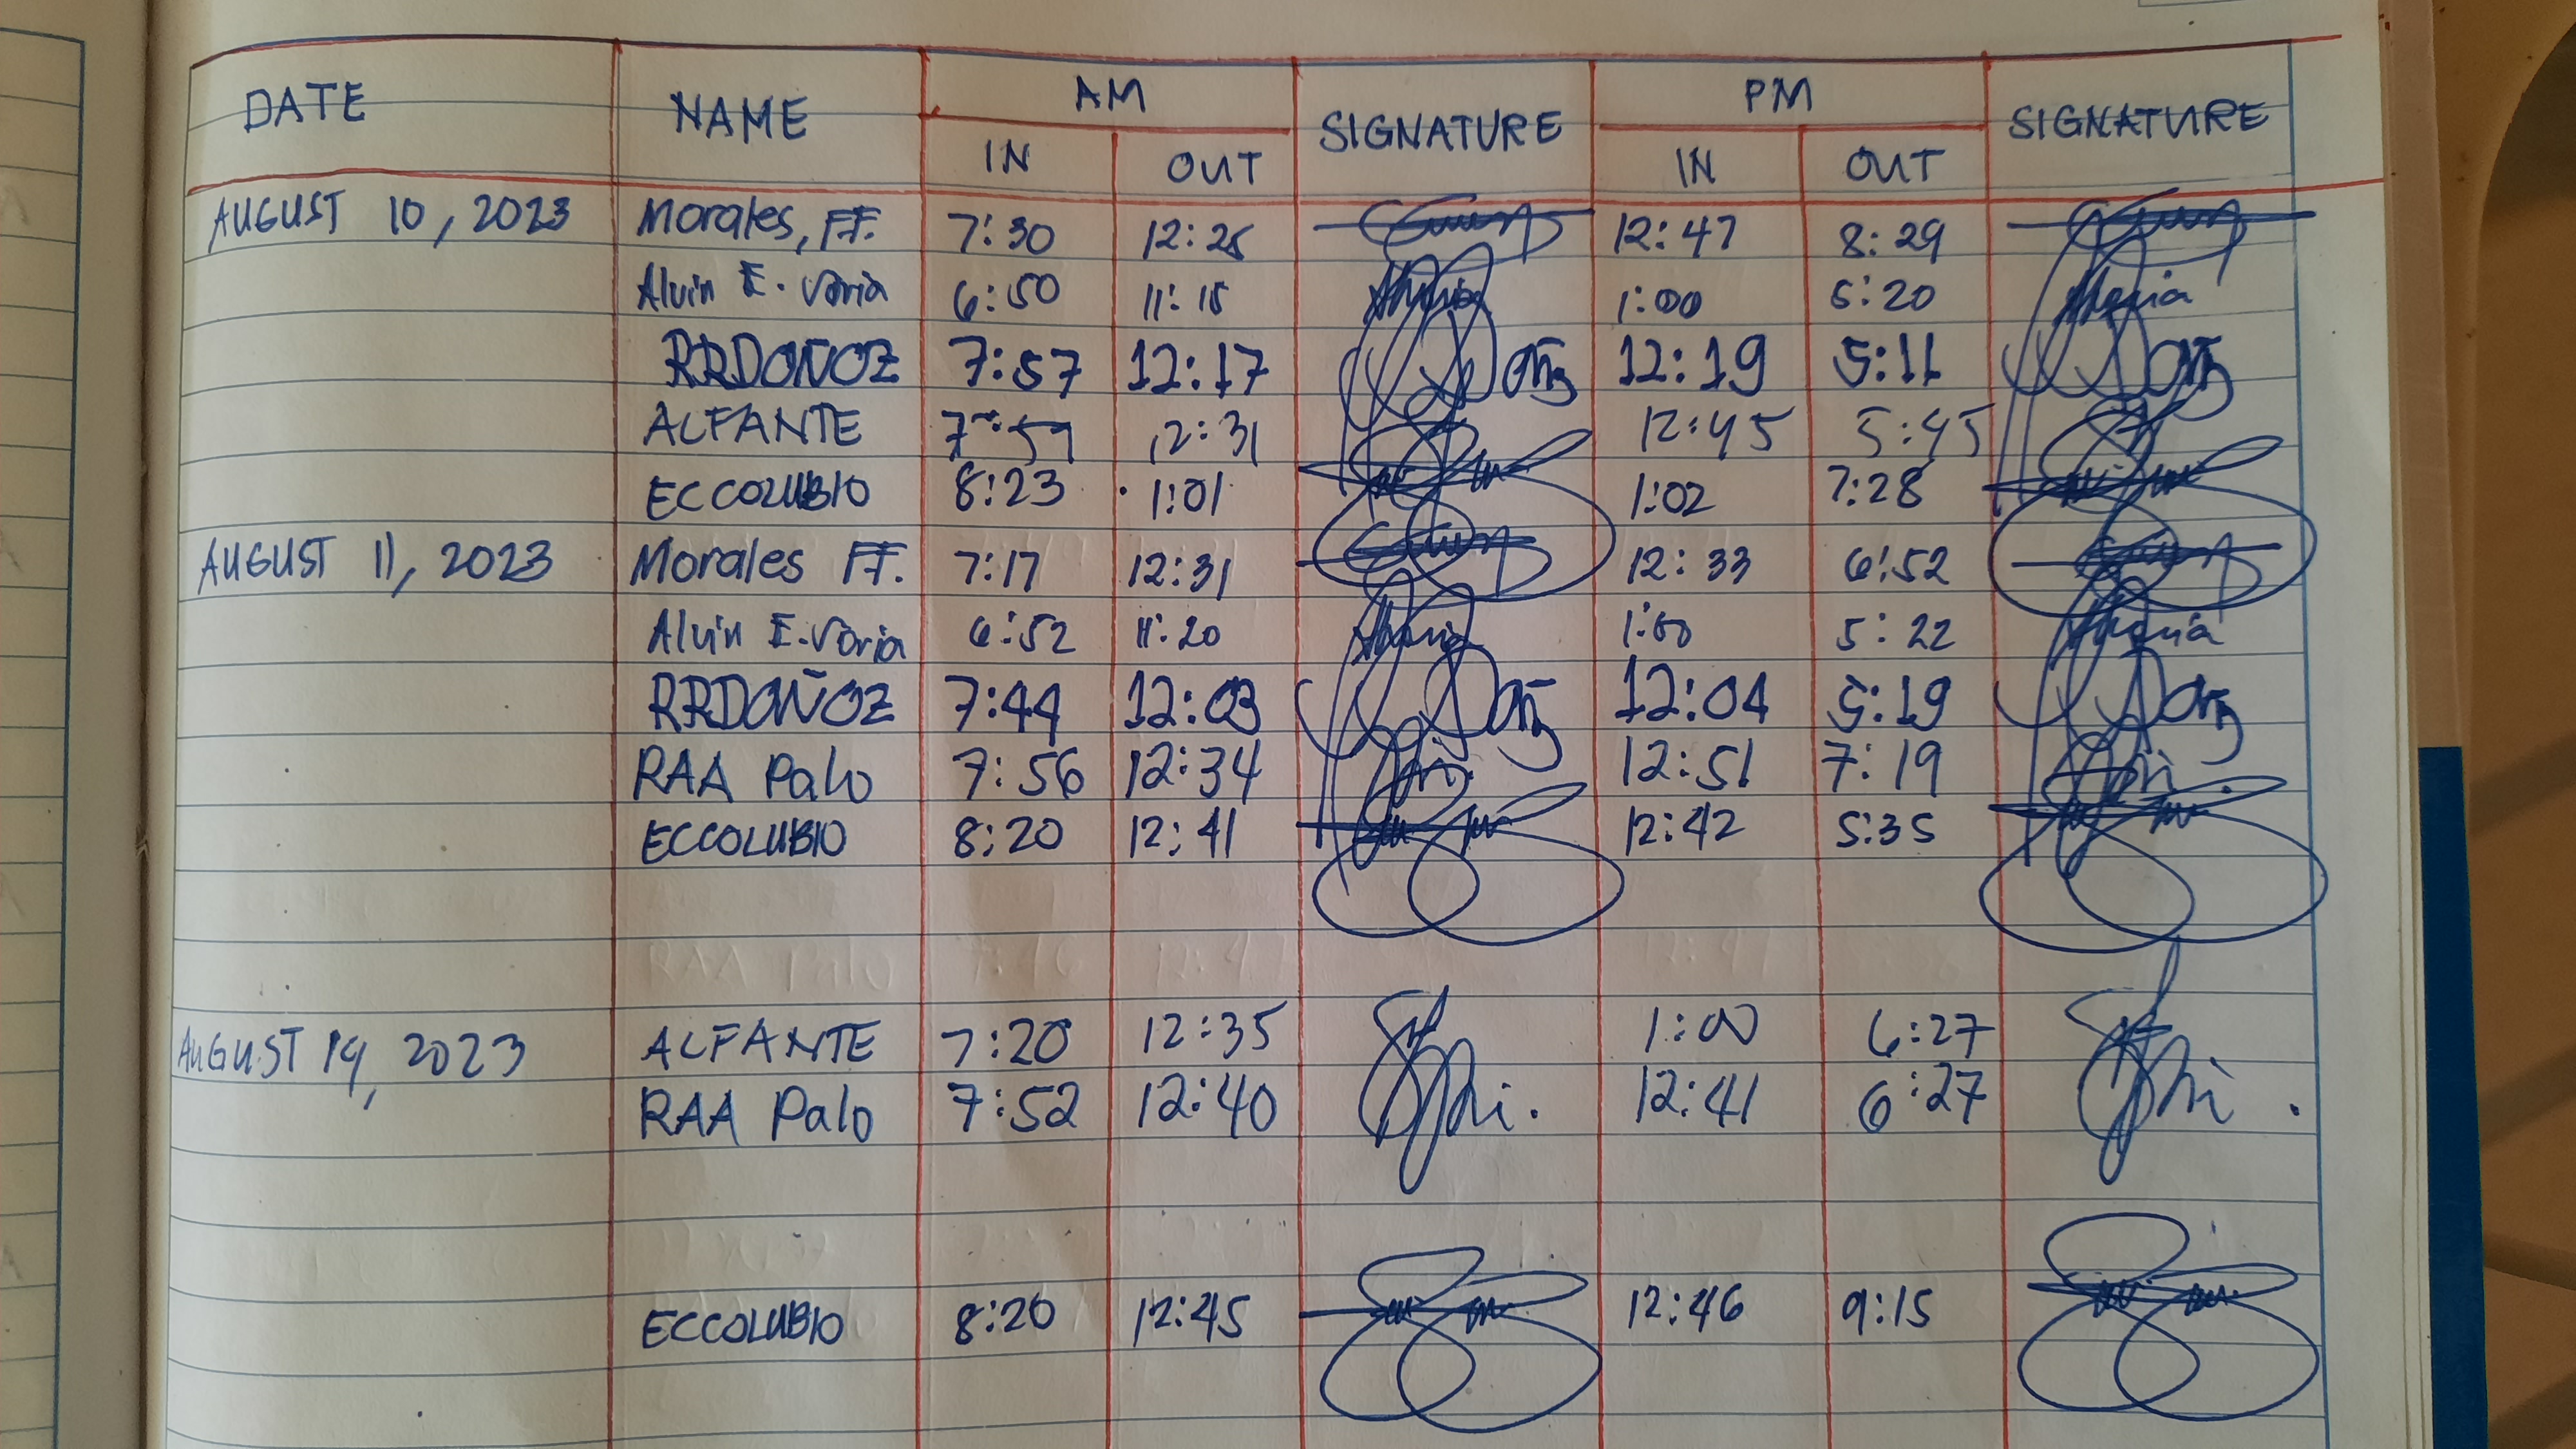 DATE NAME AM SIGNATURE PM SIGNATURE
IN OUT IN OUT
AUGUST 10, 2023 Morales, FF. 7:30 12:25 12:47 8:29
Alvin E. Varia 6:50 11:15 1:00 5:20
RRDOÑOZ 7:57 12:17 12:19 5:11
ALFANTE 7:59 12:31 12:45 5:45
ECCOLUBIO 8:23 1:01 1:02 7:28
AUGUST 11, 2023 Morales FF. 7:17 12:31 12:33 6:52
Alvin E. Varia 6:52 11:20 1:00 5:22
RRDOÑOZ 7:44 12:03 12:04 5:19
RAA Palo 7:56 12:34 12:51 7:19
ECCOLUBIO 8:20 12:41 12:42 5:35
AUGUST 14, 2023 ALFANTE 7:20 12:35 1:00 6:27
RAA Palo 7:52 12:40 12:41 6:27
ECCOLUBIO 8:20 12:45 12:46 9:15